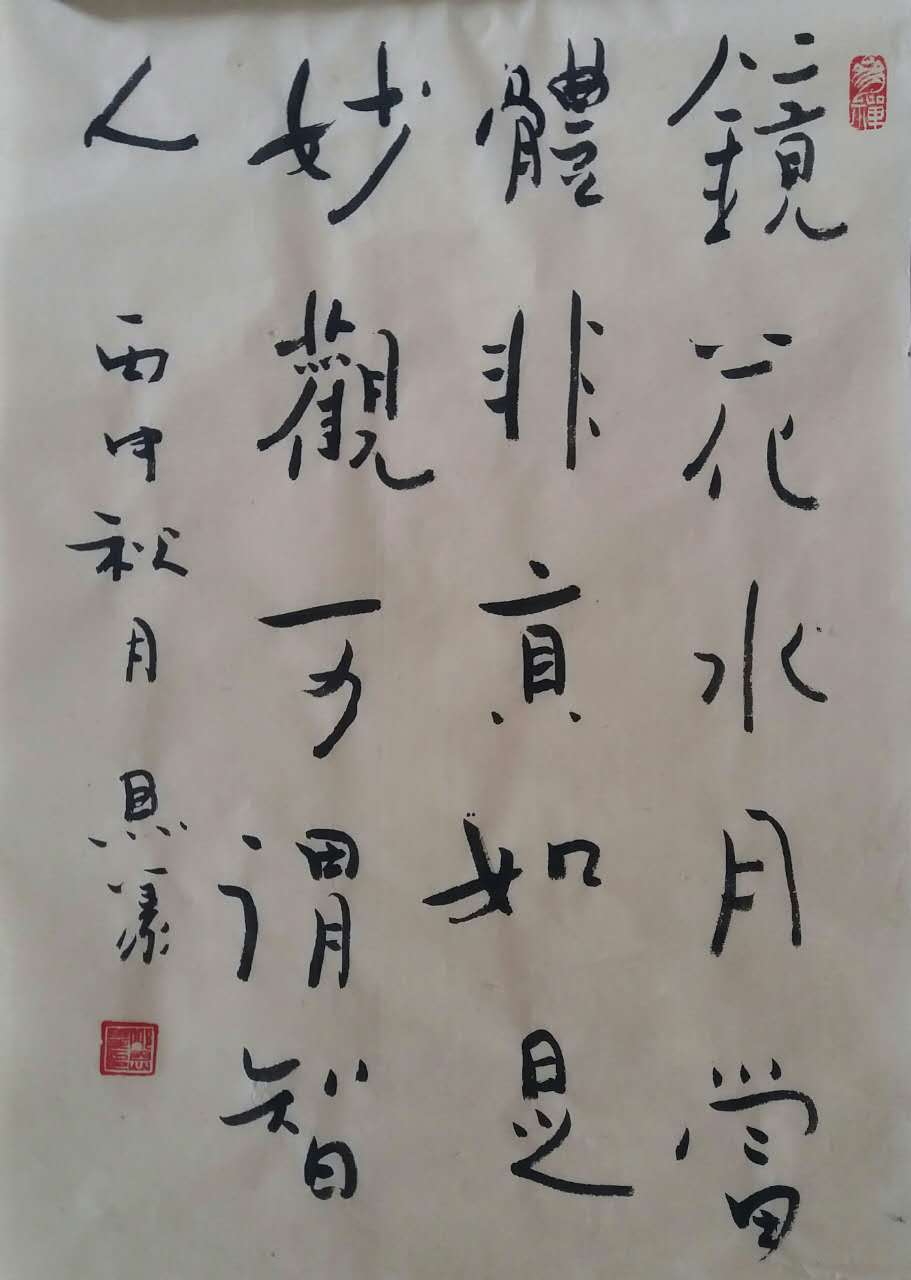 鏡花水月當
體非真如是
妙觀可謂智
人 丙申秋月